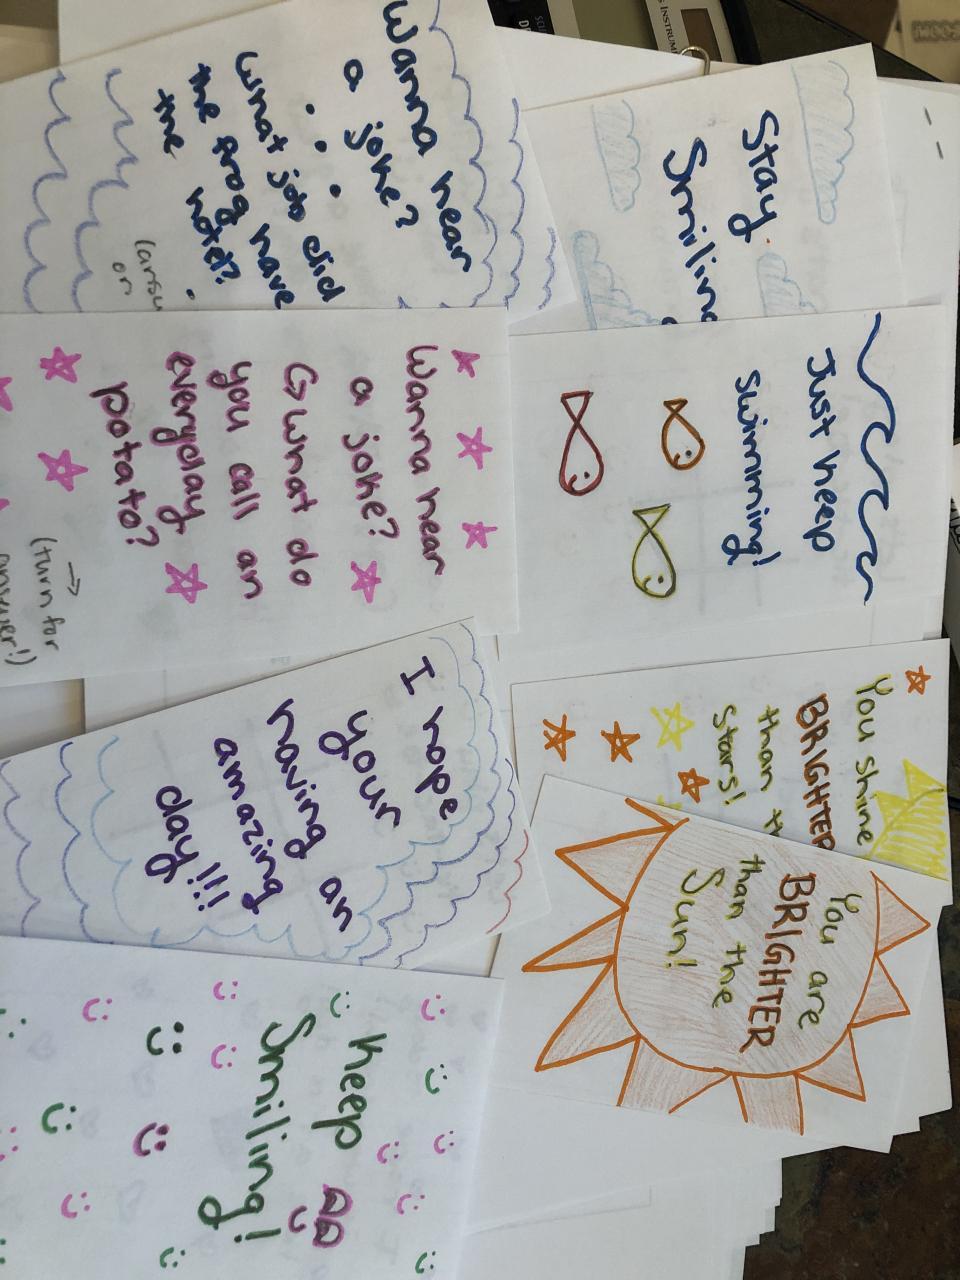 Wanna hear
a joke?
What job did
the frog have
the hotel?
Stay
Smiling
Wanna hear
a joke?
What do
you call an
everyday
potato?
(turn for
answer!)
Just keep
swimming!
I hope
your
having an
amazing
day!!!
You shine
BRIGHTER
than
Stars!
You are
BRIGHTER
than the
Sun!
Keep
Smiling!